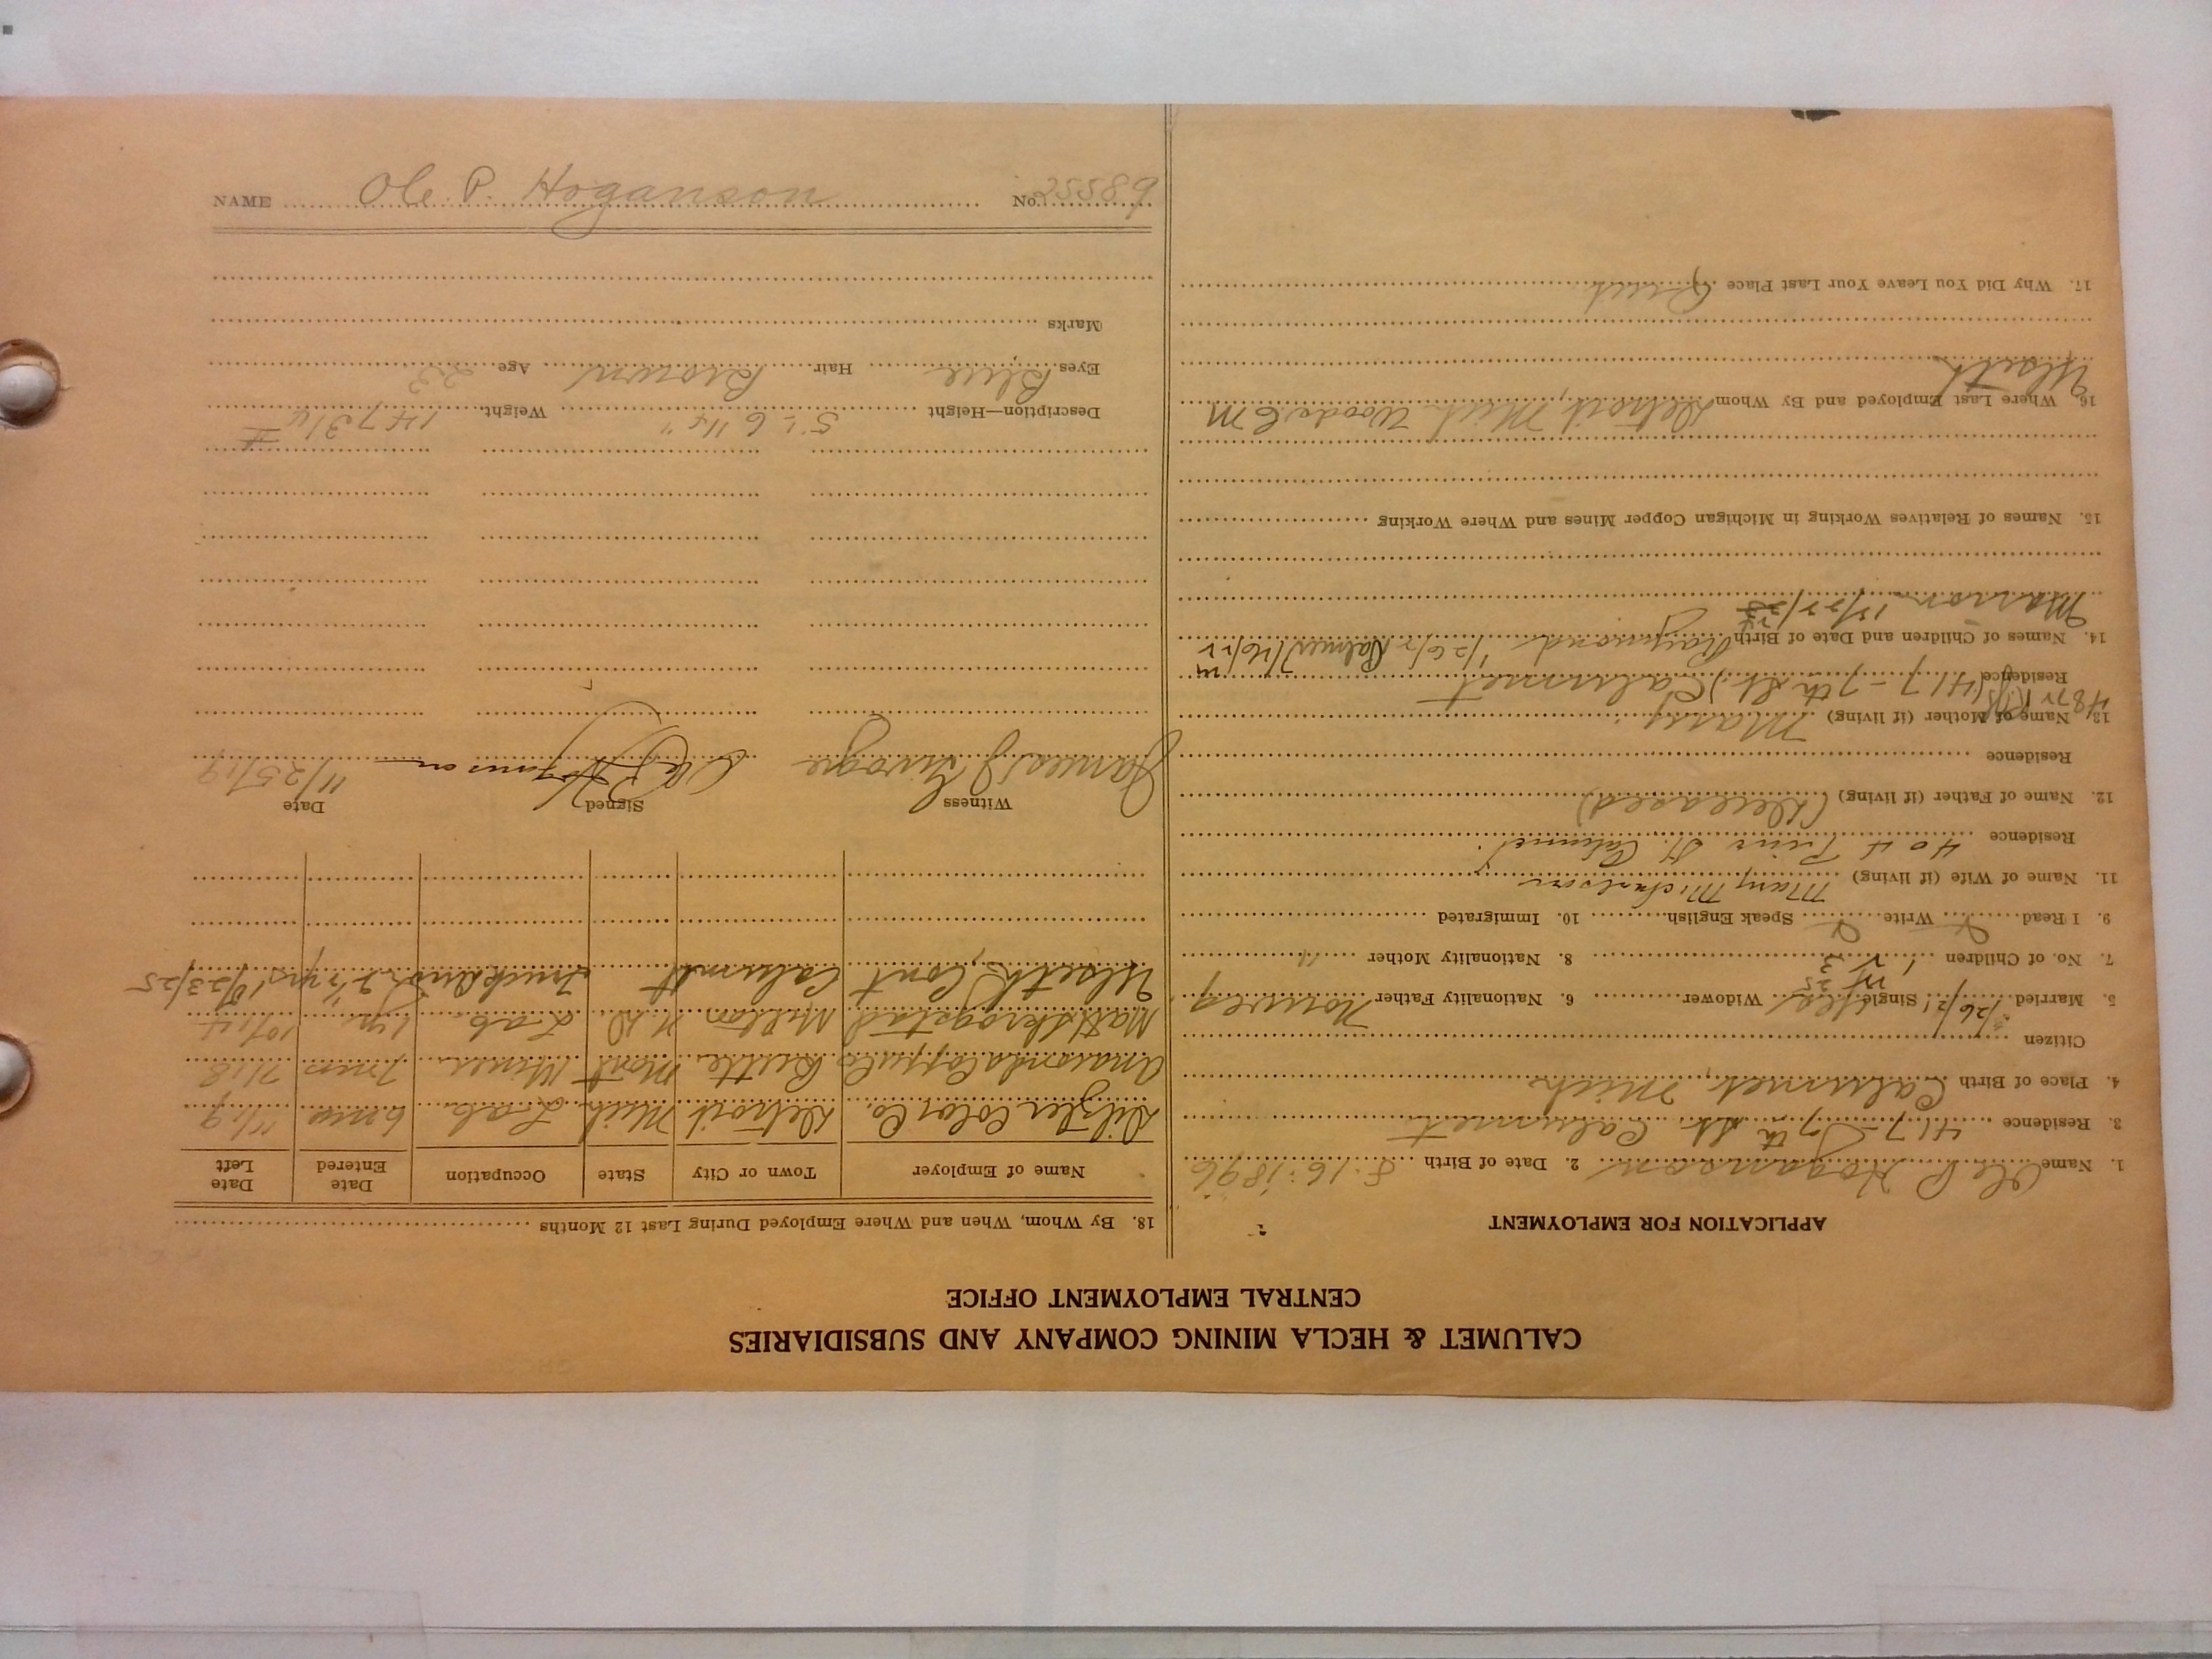 CALUMET & HECLA MINING COMPANY AND SUBSIDIARIES
CENTRAL EMPLOYMENT OFFICE
APPLICATION FOR EMPLOYMENT
1. Name Ole P Hoganson 2. Date of Birth 8-16-1896
3. Residence 417-7th St. Calumet
4. Place of Birth Calumet, Mich
Citizen
5. Married Single Yes Widower 6. Nationality Father Norweg
7. No. of Children 8. Nationality Mother "
9. I Read Write Speak English 10. Immigrated
11. Name of Wife (if living) Mary Michaelson
Residence 404 Pine St. Calumet
12. Name of Father (if living) (Deceased)
Residence
13. Name of Mother (if living) Mary
Residence 417-7th St, Calumet
14. Names of Children and Date of Birth Raymond Palmer 7/16/22
Marion
15. Names of Relatives Working in Michigan Copper Mines and Where Working
16. Where Last Employed and By Whom Detroit Mich
Ulseth
17. Why Did You Leave Your Last Place Quit
18. By Whom, When and Where Employed During Last 12 Months
Name of Employer Town or City State Occupation Date Entered Date Left
Ditzler Color Co. Detroit Mich Lab. 6 mo 11/19
Anaconda Copper Co Butte Mont Miner 7 mos 7/18
Matt Skrogstad N.D. Lab. 1 yr.
Ulseth, Cont Calumet 2 1/2 yrs 10/23/25
Witness Signed Date
James J Ole P. Hoganson 11/25/19
Description—Height 5'-6 1/4" Weight 147 3/4
Eyes Blue Hair Brown Age 23
Marks
NAME Ole P. Hoganson No. 25589